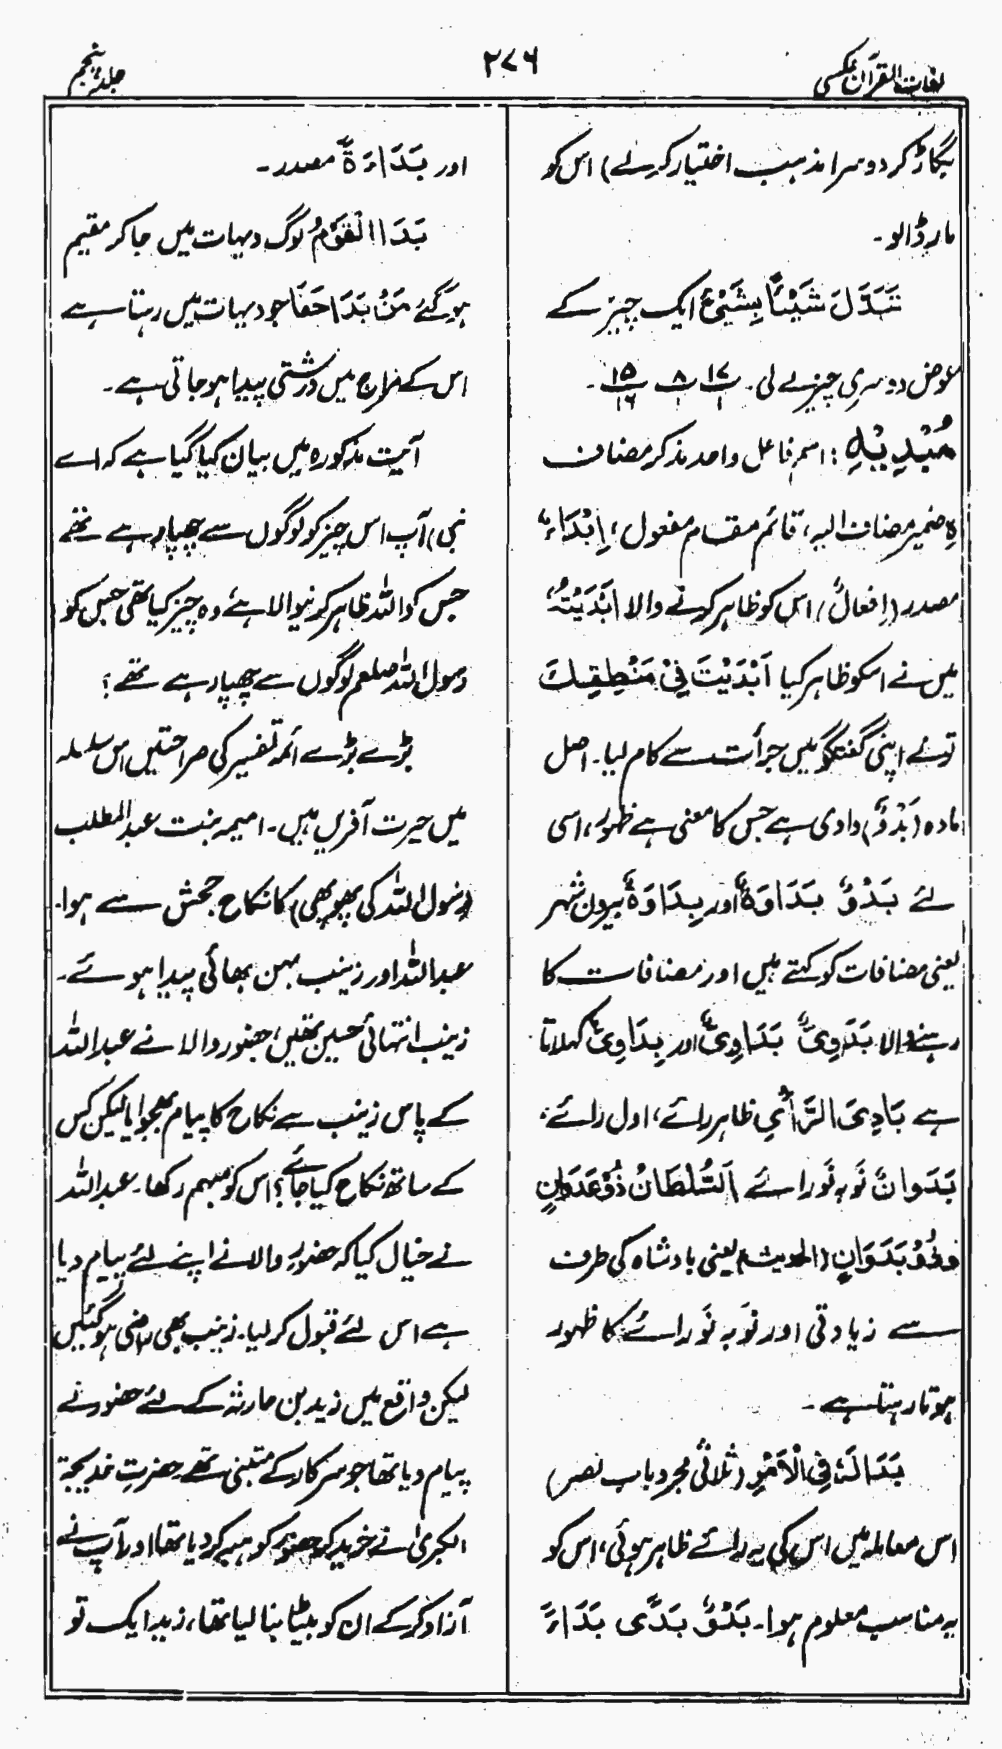 لغات القرآن عکسی
۲۷۶
جلد پنجم
بگاڑ کر دوسرا مذہب اختیار کرلے) اس کو
مار ڈالو۔
تَبَدَّلَ شَیْئًا بِشَیْئٍ ایک چیز کے
عوض دوسری چیز لے لی۔ پ ۱۷/۱ پ ۸/۱ پ ۱۵/۱۶ ۔
مُبْدِیْہِ : اسم فاعل واحد مذکر مضاف
ہِ ضمیر مضاف الیہ، قائم مقام مفعول، اِبْدَاءٌ
مصدر (اِفعالٌ) اس کو ظاہر کرنے والا اَبْدَیْتُہٗ
میں نے اسکو ظاہر کیا اَبْدَیْتَ فِیْ مَنْطِقِکَ
تونے اپنی گفتگو میں جرأت سے کام لیا۔ اصل
مادہ (بَدْوٌ) وادی ہے جس کا معنی ہے ظہور، اسی
لئے بَدْوٌ بَدَاوَۃٌ اور بِدَاوَۃٌ بیرون شہر
یعنی مضافات کو کہتے ہیں اور مضافات کا
رہنے والا بَدَوِیٌّ بَدَاوِیٌّ اور بِدَاوِیٌّ کہلاتا
ہے بَادِیَ الرَّأْیِ ظاہر رائے، اول رائے،
بَدَوانٌ نَو بہ نَو رائے اَلسُّلْطَانُ ذُوْعَدَوَانٍ
وَذُوْ بَدَوَانٍ (الحدیث) یعنی بادشاہ کی طرف
سے زیادتی اور نَو بہ نَو رائے کا ظہور
ہوتا رہتا ہے۔
بَدَا لَہٗ فِی الْاَمْرِ (ثلاثی مجرد باب نصر)
اس معاملہ میں اس کی یہ رائے ظاہر ہوئی، اس کو
یہ مناسب معلوم ہوا۔ بَدْوٌ بَدًی بَدَاءً
اور بَدَاءَۃً مصدر۔
بَدَا الْقَوْمُ لوگ دیہات میں جا کر مقیم
ہوگئے مَنْ بَدَا جَفَا جو دیہات میں رہتا ہے
اس کے مزاج میں درشتی پیدا ہو جاتی ہے۔
آیت مذکورہ میں بیان کیا گیا ہے کہ اے
نبی، آپ اس چیز کو لوگوں سے چھپا رہے تھے
جس کو اللہ ظاہر کرنیوالا ہے وہ چیز کیا تھی جس کو
رسول اللہ صلعم لوگوں سے چھپا رہے تھے؟
بڑے بڑے ائمہ تفسیر کی صراحتیں اس سلسلہ
میں حیرت آفریں ہیں۔ امیمہ بنت عبدالمطلب
(رسول اللہ کی پھوپھی) کا نکاح جحش سے ہوا۔
عبداللہ اور زینب بہن بھائی پیدا ہوئے۔
زینب انتہائی حسین تھیں، حضور والا نے عبداللہ
کے پاس زینب سے نکاح کا پیام بھجوایا لیکن کس
کے ساتھ نکاح کیا جائے؟ اس کو مبہم رکھا۔ عبداللہ
نے خیال کیا کہ حضور والا نے اپنے لئے پیام دیا
ہے اس لئے قبول کر لیا۔ زینب بھی راضی ہوگئیں
لیکن واقع میں زید بن حارثہ کے لئے حضور نے
پیام دیا تھا جو سرکار کے متبنی تھے حضرت خدیجۃ
الکبریٰ نے خرید کر حضور کو ہبہ کر دیا تھا اور آپ نے
آزاد کرکے ان کو بیٹا بنا لیا تھا، زید ایک تو